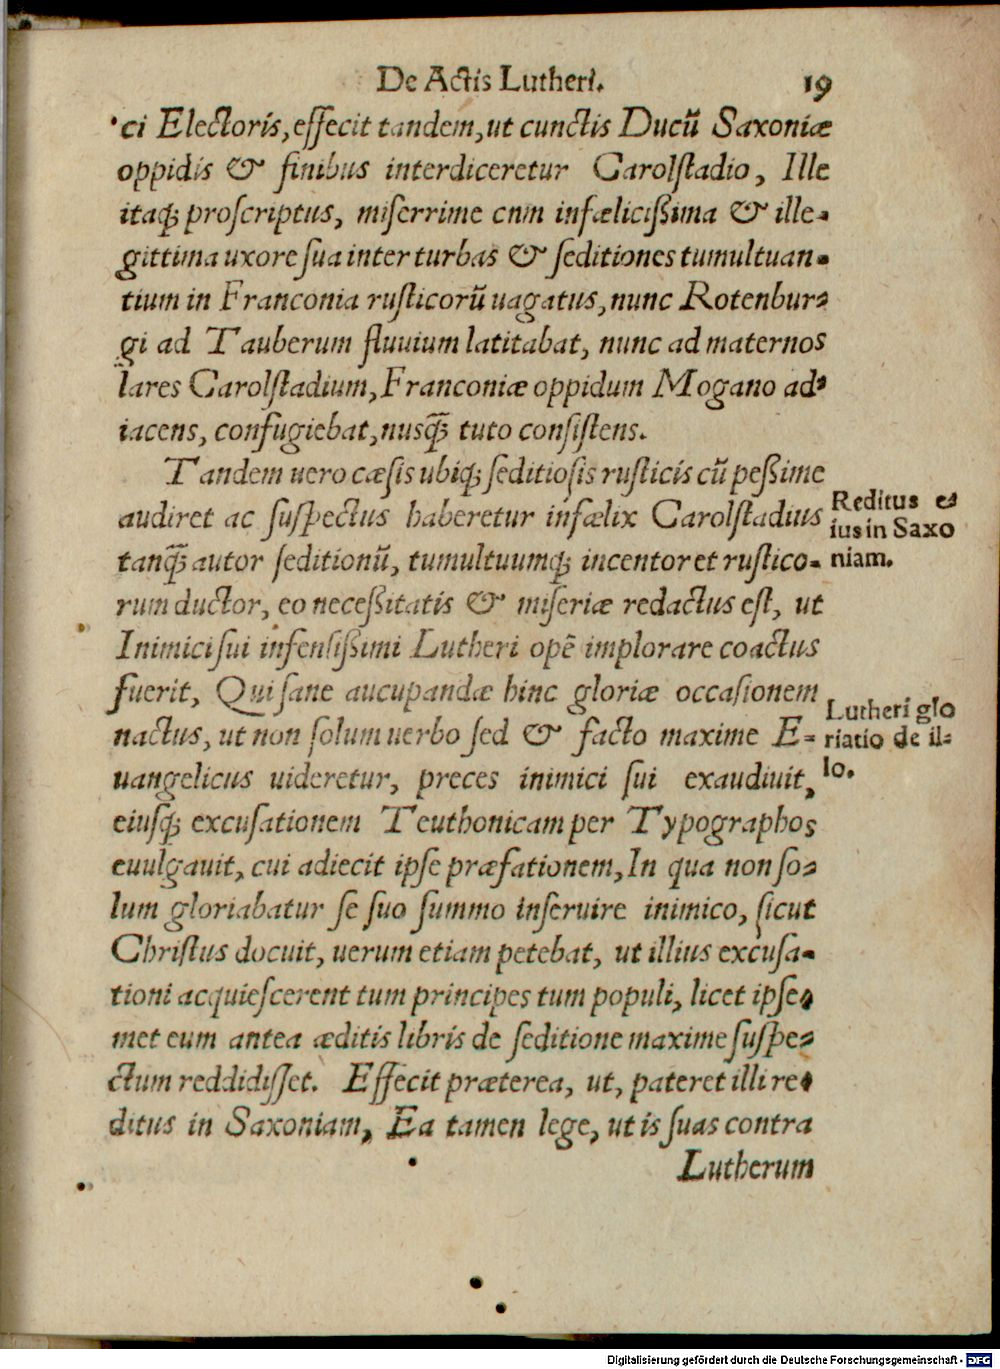 De Actis Lutheri. 19
ci Electoris, effecit tandem, ut cunctis Ducũ Saxoniæ
oppidis & finibus interdiceretur Carolstadio, Ille
itaq; proscriptus, miserrime cnm infælicißima & ille-
gittima uxore sua inter turbas & seditiones tumultuan-
tium in Franconia rusticorũ uagatus, nunc Rotenbur-
gi ad Tauberum fluuium latitabat, nunc ad maternos
lares Carolstadium, Franconiæ oppidum Mogano ad-
iacens, confugiebat, nusq̃; tuto consistens.
Tandem uero cæsis ubiq; seditiosis rusticis cũ peßime
audiret ac suspectus haberetur infælix Carolstadius
tanq̃; autor seditionũ, tumultuumq; incentor et rustico-
rum ductor, eo neceßitatis & miseriæ redactus est, ut
Inimici sui infensißimi Lutheri opẽ implorare coactus
fuerit, Qui sane aucupandæ hinc gloriæ occasionem
nactus, ut non solum uerbo sed & facto maxime E-
uangelicus uideretur, preces inimici sui exaudiuit,
eiusq; excusationem Teuthonicam per Typographos
euulgauit, cui adiecit ipse præfationem, In qua non so-
lum gloriabatur se suo summo inseruire inimico, sicut
Christus docuit, uerum etiam petebat, ut illius excusa-
tioni acquiescerent tum principes tum populi, licet ipse-
met eum antea æditis libris de seditione maxime suspe-
ctum reddidisset. Effecit præterea, ut, pateret illi re-
ditus in Saxoniam, Ea tamen lege, ut is suas contra
Lutherum
Reditus e-
ius in Saxo
niam.
Lutheri glo
riatio de il-
lo.
Digitalisierung gefördert durch die Deutsche Forschungsgemeinschaft - DFG